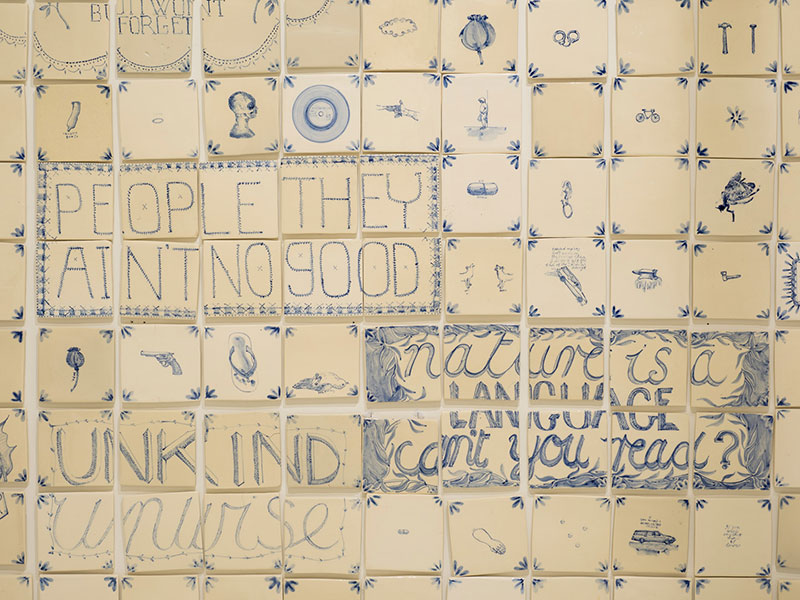 BUT I WON'T
FORGET
PEOPLE THEY
AIN'T NO GOOD
nature is a
LANGUAGE
can't you read?
UNKIND